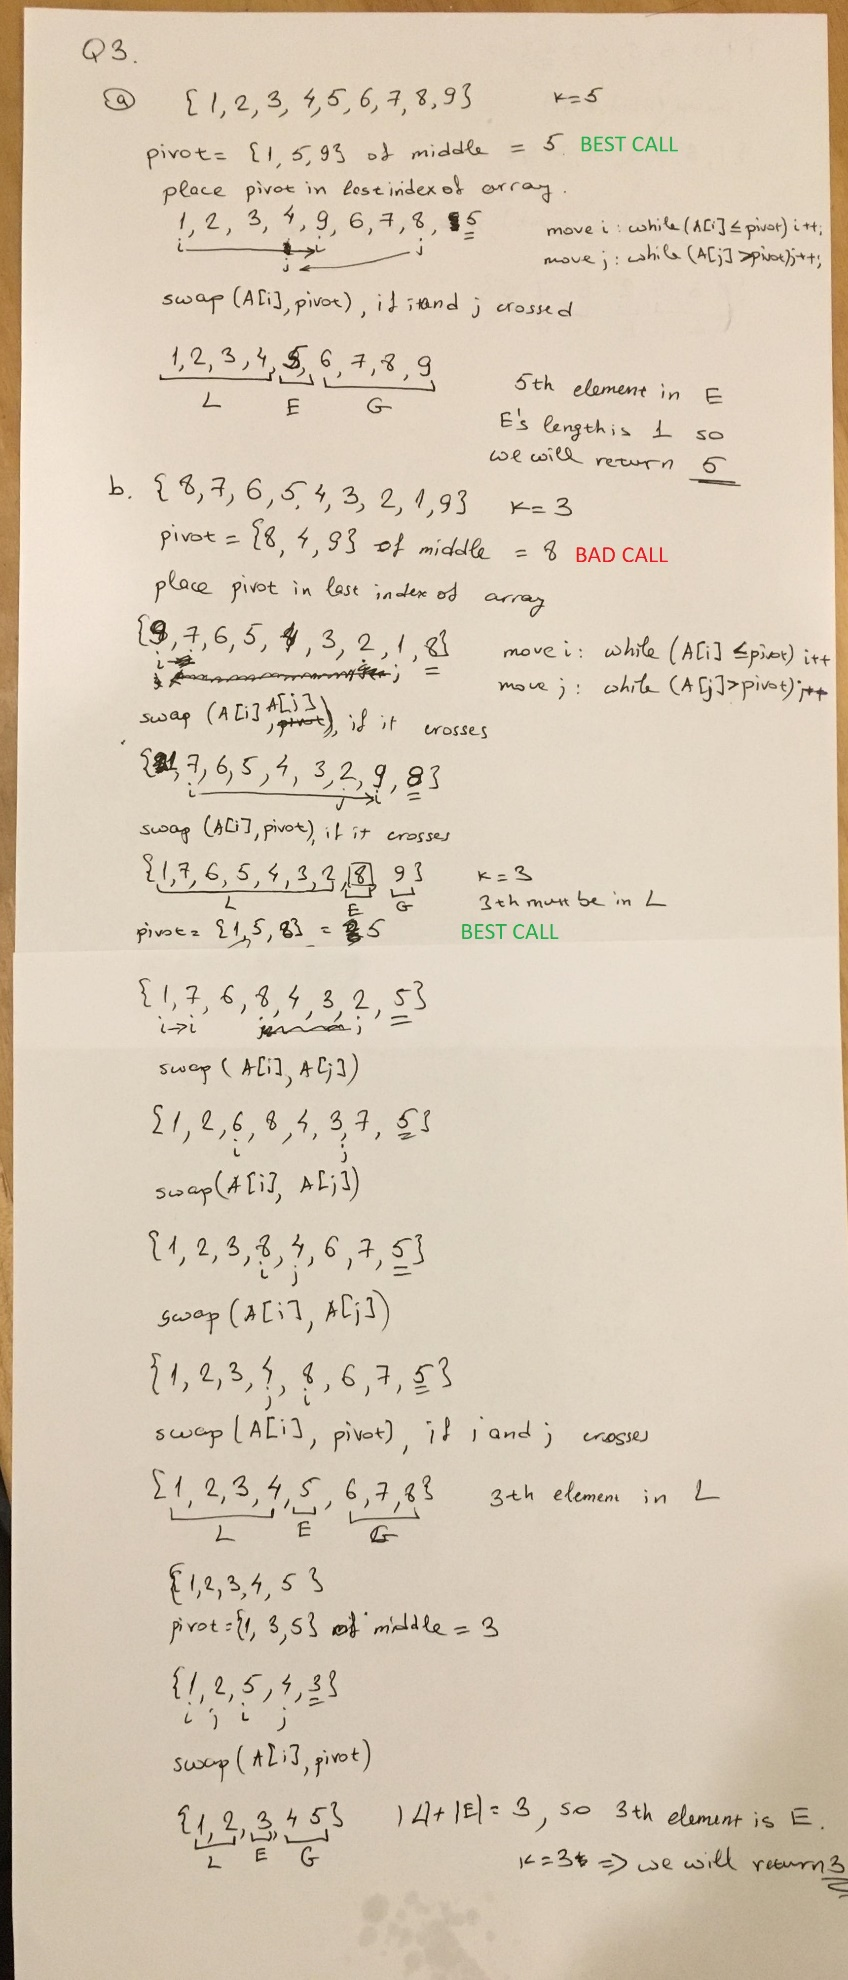 Q3.
a {1,2,3,4,5,6,7,8,9} K=5
pivot= {1,5,9} of middle = 5 BEST CALL
place pivot in last index of array.
1, 2, 3, 4, 9, 6, 7, 8, 5
move i : while (A[i] ≤ pivot) i++;
i i j
move j : while (A[j] > pivot) j++;
j
swap (A[i], pivot), if i and j crossed
1,2,3,4, 5, 6,7,8,9
L E G
5th element in E
E's length is 1 so
we will return 5
b. {8,7,6,5,4,3,2,1,9} K=3
pivot = {8,4,9} of middle = 8 BAD CALL
place pivot in last index of array
{9,7,6,5,4,3,2,1,8}
move i : while (A[i] ≤ pivot) i++
i j
move j : while (A[j] > pivot) j++
swap (A[i], A[j]), if it crosses
{1,7,6,5,4,3,2,9,8}
i j i
swap (A[i], pivot), if it crosses
{1,7,6,5,4,3,2,8 9} K=3
L E G 3th must be in L
pivot= {1,5,8} = 5 BEST CALL
{1,7,6,8,4,3,2,5}
i→i j
swap ( A[i], A[j])
{1,2,6,8,4,3,7,5}
i j
swap(A[i], A[j])
{1,2,3,8,4,6,7,5}
i j
swap (A[i], A[j])
{1,2,3,4,8,6,7,5}
j i
swap (A[i], pivot), if i and j crosses
{1,2,3,4,5,6,7,8} 3th element in L
L E G
{1,2,3,4,5}
pivot={1,3,5} of middle = 3
{1,2,5,4,3}
i j i j
swap(A[i], pivot)
{1,2,3,4 5} |L|+|E|=3, so 3th element is E.
L E G K=3 => we will return 3